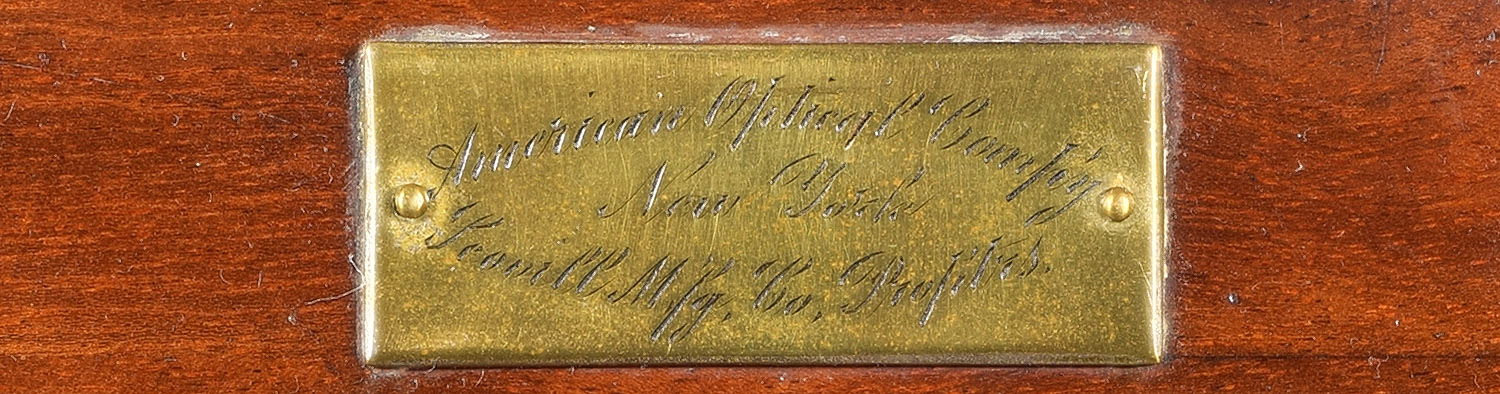 American Optical Comp'y
New York
Scovill M'f'g. Co. Prop't'rs.